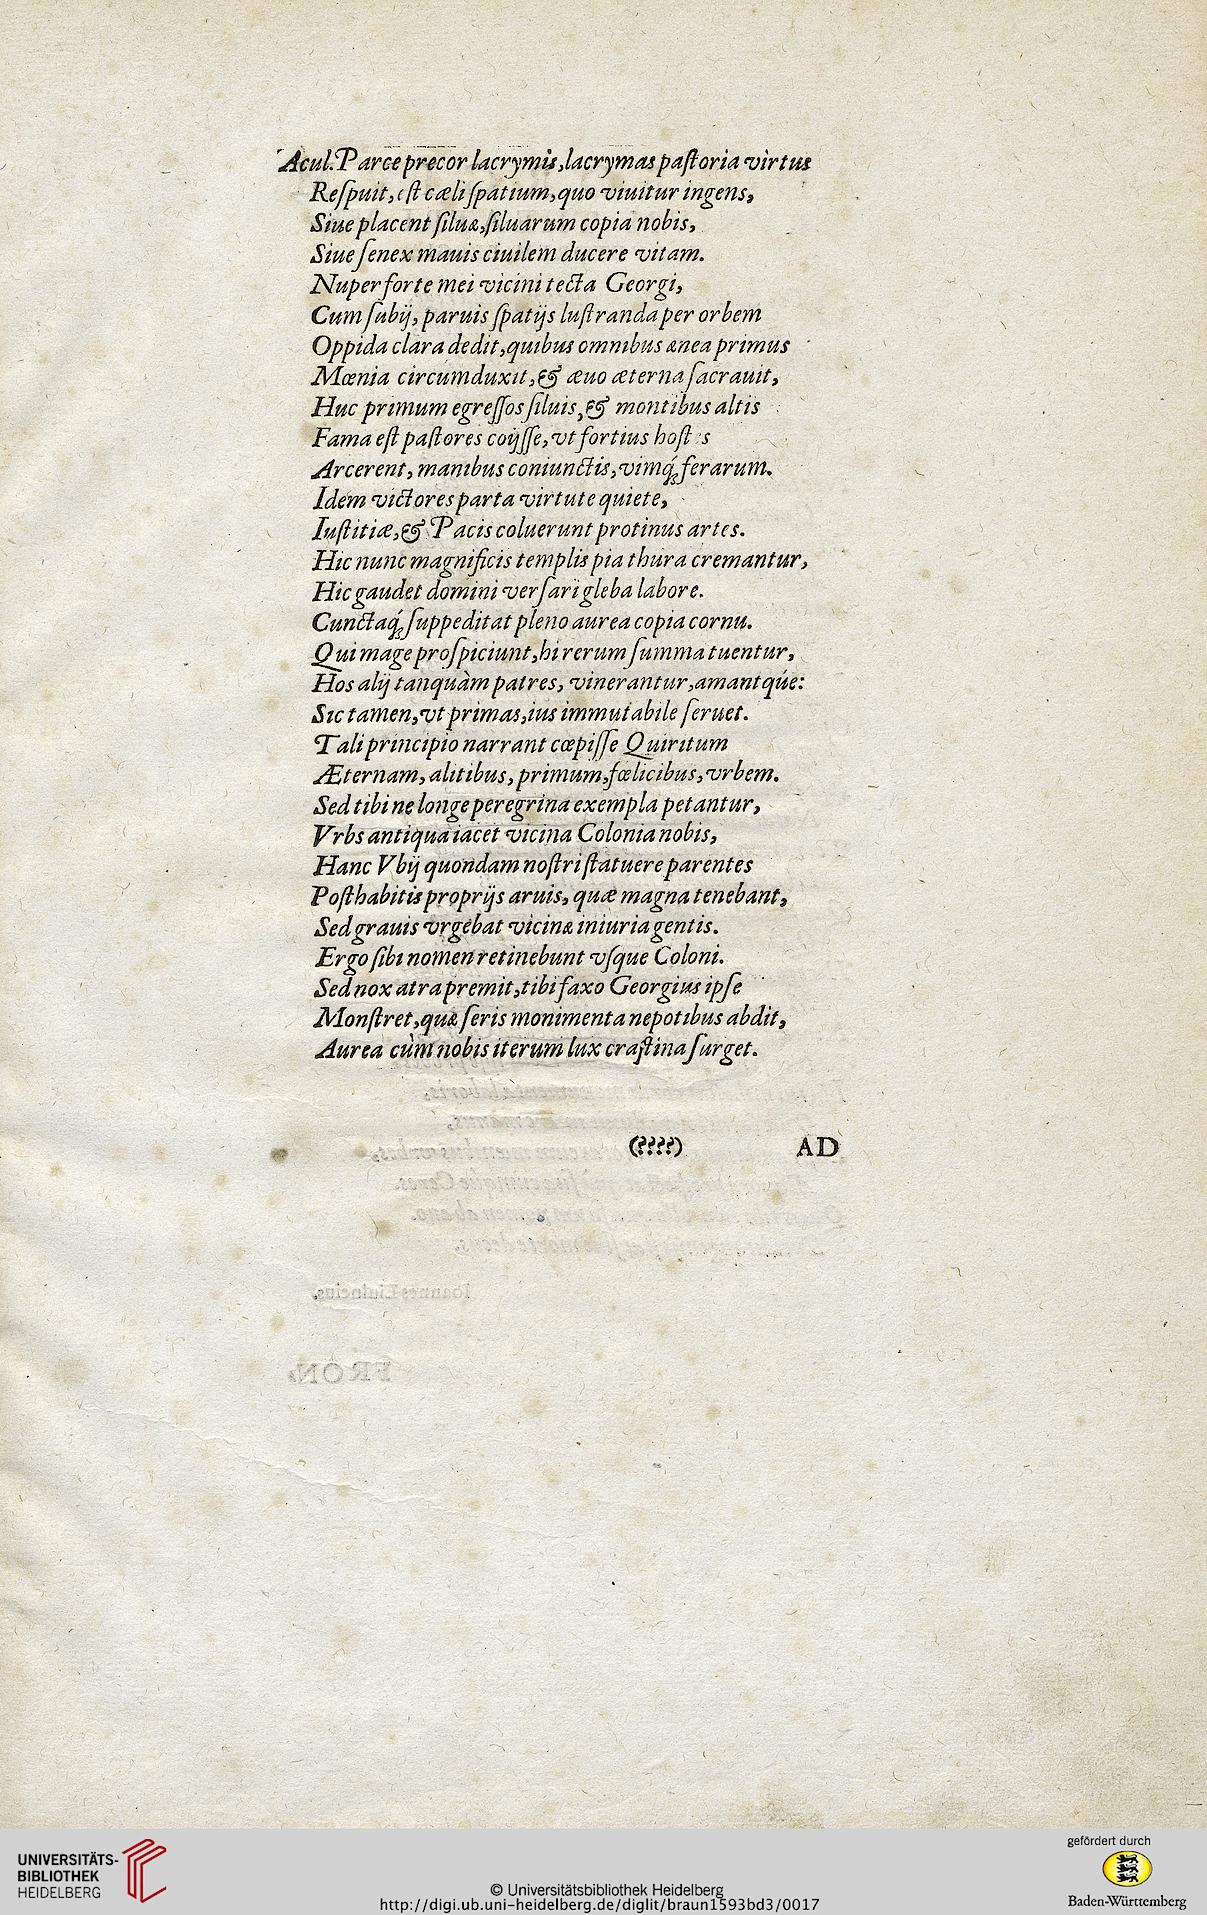 Acul. Parce precor lacrymis, lacrymas paſtoria virtus
Reſpuit, eſt cæli ſpatium, quo viuitur ingens,
Siue placent ſiluæ, ſiluarum copia nobis,
Siue ſenex mauis ciuilem ducere vitam.
Nuper forte mei vicini tecta Georgi,
Cum ſubij, paruis ſpatijs luſtranda per orbem
Oppida clara dedit, quibus omnibus ænea primus
Mœnia circumduxit, & æuo æterna ſacrauit,
Huc primum egreſſos ſiluis, & montibus altis
Fama eſt paſtores coijſſe, vt fortius hoſtes
Arcerent, manibus coniunctis, vimq́ꝫ ferarum.
Idem victores parta virtute quiete,
Iuſtitiæ, & Pacis coluerunt protinus artes.
Hic nunc magnificis templis pia thura cremantur,
Hic gaudet domini verſari gleba labore.
Cunctaq́ꝫ ſuppeditat pleno aurea copia cornu.
Qui mage proſpiciunt, hi rerum ſumma tuentur,
Hos alij tanquàm patres, vinerantur, amantqúe:
Sic tamen, vt primas, ius immutabile ſeruet.
Tali principio narrant cœpiſſe Quiritum
Æternam, alitibus, primum, fœlicibus, vrbem.
Sed tibi ne longe peregrina exempla petantur,
Vrbs antiqua iacet vicina Colonia nobis,
Hanc Vbij quondam noſtri ſtatuere parentes
Poſthabitis proprijs aruis, quæ magna tenebant,
Sed grauis vrgebat vicinæ iniuria gentis.
Ergo ſibi nomen retinebunt vſque Coloni.
Sed nox atra premit, tibi faxo Georgius ipſe
Monſtret, quæ ſeris monimenta nepotibus abdit,
Aurea cùm nobis iterum lux craſtina ſurget.
(????) AD
UNIVERSITÄTS-
BIBLIOTHEK
HEIDELBERG
© Universitätsbibliothek Heidelberg
http://digi.ub.uni-heidelberg.de/diglit/braun1593bd3/0017
gefördert durch
Baden-Württemberg